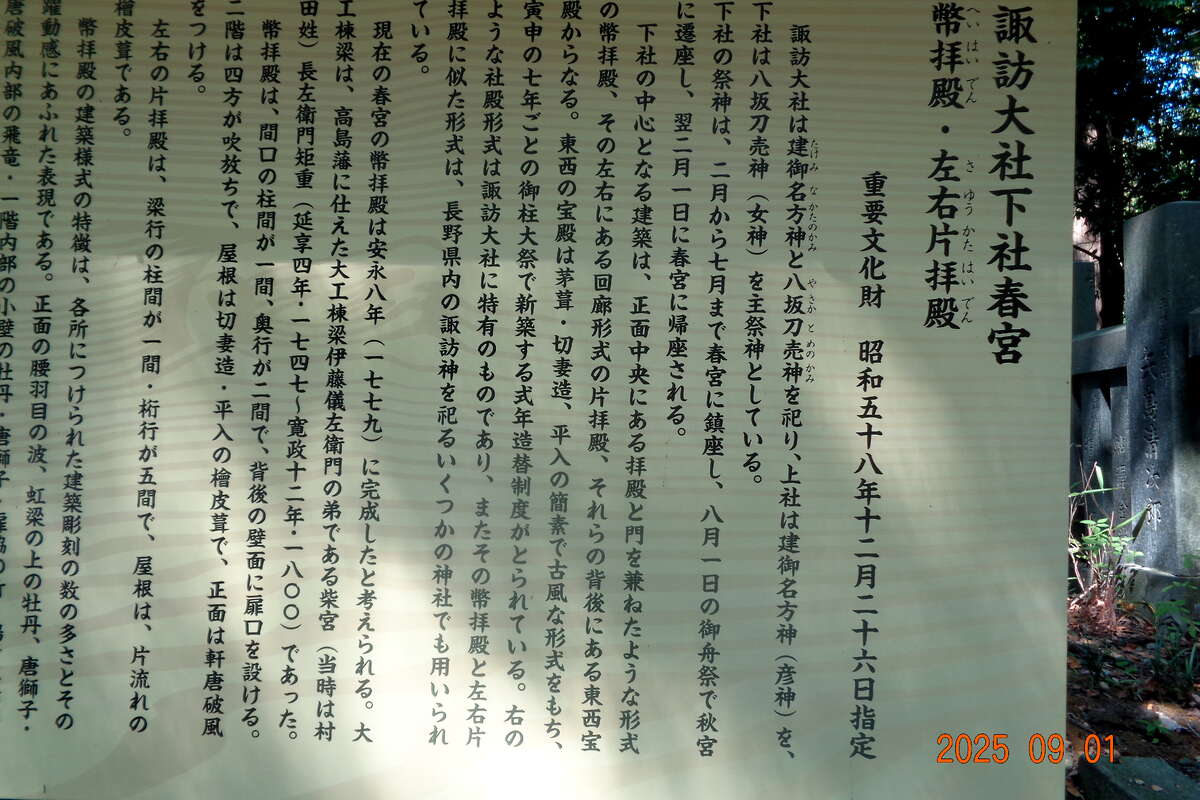 諏訪大社下社春宮
幣拝殿・左右片拝殿
へい はい でん
さ ゆう かた はい でん
重要文化財 昭和五十八年十二月二十六日指定
諏訪大社は建御名方神と八坂刀売神を祀り、上社は建御名方神（彦神）を、
たけみ な かたのかみ
やさか と めのかみ
下社は八坂刀売神（女神）を主祭神としている。
下社の祭神は、二月から七月まで春宮に鎮座し、八月一日の御舟祭で秋宮
に遷座し、翌二月一日に春宮に帰座される。
下社の中心となる建築は、正面中央にある拝殿と門を兼ねたような形式
の幣拝殿、その左右にある回廊形式の片拝殿、それらの背後にある東西宝
殿からなる。東西の宝殿は茅葺・切妻造、平入の簡素で古風な形式をもち、
寅申の七年ごとの御柱大祭で新築する式年造替制度がとられている。右の
ような社殿形式は諏訪大社に特有のものであり、またその幣拝殿と左右片
拝殿に似た形式は、長野県内の諏訪神を祀るいくつかの神社でも用いられ
ている。
現在の春宮の幣拝殿は安永八年（一七七九）に完成したと考えられる。大
工棟梁は、高島藩に仕えた大工棟梁伊藤儀左衛門の弟である柴宮（当時は村
田姓）長左衛門矩重（延享四年・一七四七～寛政十二年・一八〇〇）であった。
幣拝殿は、間口の柱間が一間、奥行が二間で、背後の壁面に扉口を設ける。
二階は四方が吹放ちで、屋根は切妻造・平入の檜皮葺で、正面は軒唐破風
をつける。
左右の片拝殿は、梁行の柱間が一間・桁行が五間で、屋根は、片流れの
檜皮葺である。
幣拝殿の建築様式の特徴は、各所につけられた建築彫刻の数の多さとその
躍動感にあふれた表現である。正面の腰羽目の波、虹梁の上の牡丹、唐獅子・
唐破風内部の飛竜・一階内部の小壁の牡丹・唐獅子・扉脇の
2025 09 01